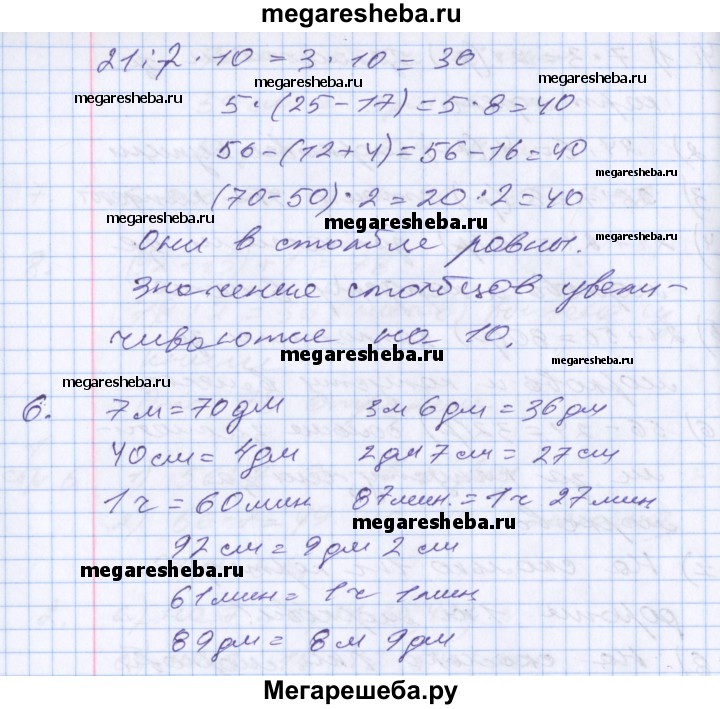 megaresheba.ru
21:7·10=3·10=30
megaresheba.ru
megaresheba.ru
megaresheba.ru
5·(25-17)=5·8=40
56-(12+4)=56-16=40
megaresheba.ru
(70-50)·2=20·2=40
megaresheba.ru
megaresheba.ru
Они в столбце равны.
Значение столбцов увели-
чиваются на 10.
megaresheba.ru
megaresheba.ru
6. 7м=70дм 3м 6дм=36дм
40см=4дм 2дм 7см=27см
1ч=60мин 87мин.=1ч 27мин
megaresheba.ru
92см=9дм 2см
megaresheba.ru
61мин=1ч 1мин
89дм=8м 9дм
Мегарешеба.ру